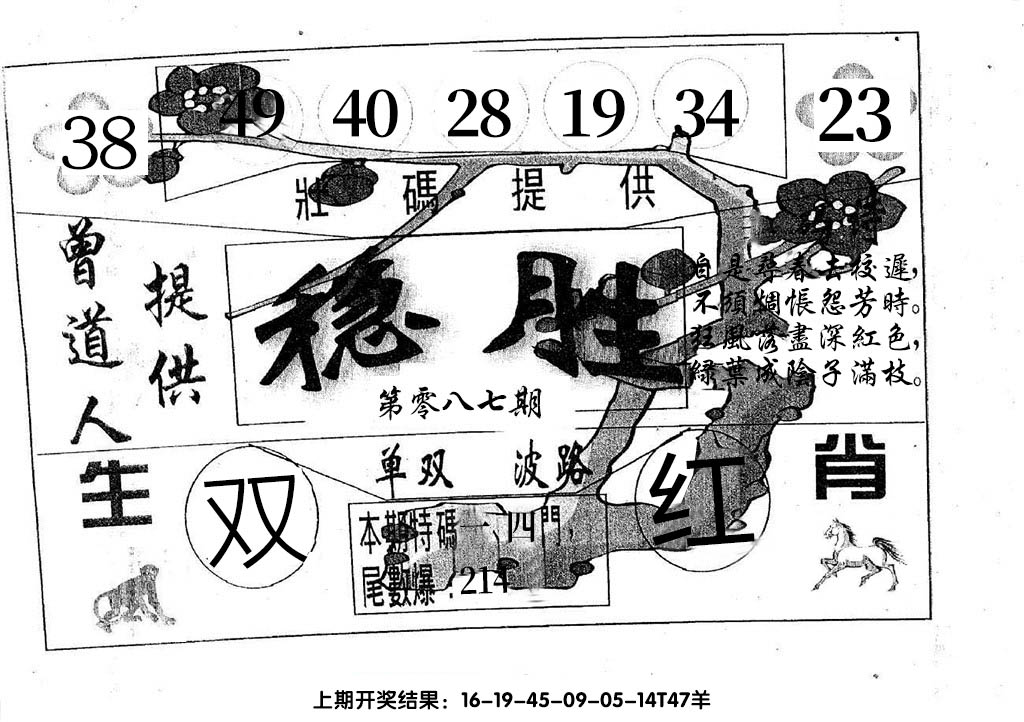 38 49 40 28 19 34 23
壯碼提供
曾道人
提供
稳胜
第零八七期
自是尋春去校遲，
不須惆悵怨芳時。
狂風落盡深紅色，
綠葉成陰子滿枝。
单双 波路
生肖
双 红
本期特碼一、四門，
尾數爆：214
上期开奖结果：16-19-45-09-05-14T47羊